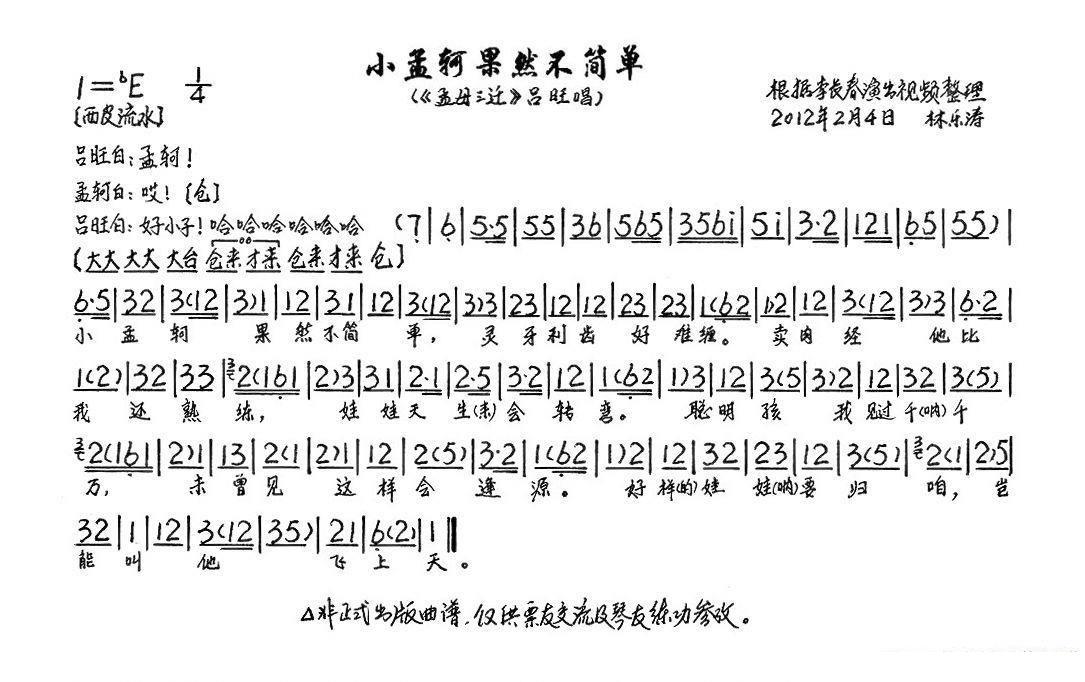 小孟轲果然不简单
(《孟母三迁》吕旺唱)
1=ᵇE 1/4
[西皮流水]
根据李长春演出视频整理
2012年2月4日 林乐涛
吕旺白:孟轲!
孟轲白:哎![仓]
吕旺白:好小子!哈哈哈哈哈哈 (7|6|5·5|55|36|565|356i|5i|3·2|121|65|55)|
[大大 大大 大台 仓来才来 仓来才来 仓]
6·5|32|3(12|3)1|12|31|12|3(12|3)3|23|12|12|23|23|1(62|1)2|12|3(12|3)3|6·2|
小孟轲 果然不简单,灵牙利齿好难缠。卖肉经 他比
1(2)|32|33|2(161|2)3|31|2·1|2·5|3·2|12|1(62|1)3|12|3(5|3)2|12|32|3(5)|
我还熟练,娃娃天生(来)会转弯。聪明孩 我见过千(呐)千
2(161|2)1|13|2(1|2)1|12|2(5)|3·2|1(62|1)2|12|32|23|12|3(5)|2(1|2)5|
万,未曾见 这样会逢源。好样(的)娃娃(呐)要归咱,岂
32|1|12|3(12|35)|21|6(2)|1‖
能叫他 飞上天。
△非正式出版曲谱,仅供票友交流及琴友练功参改。